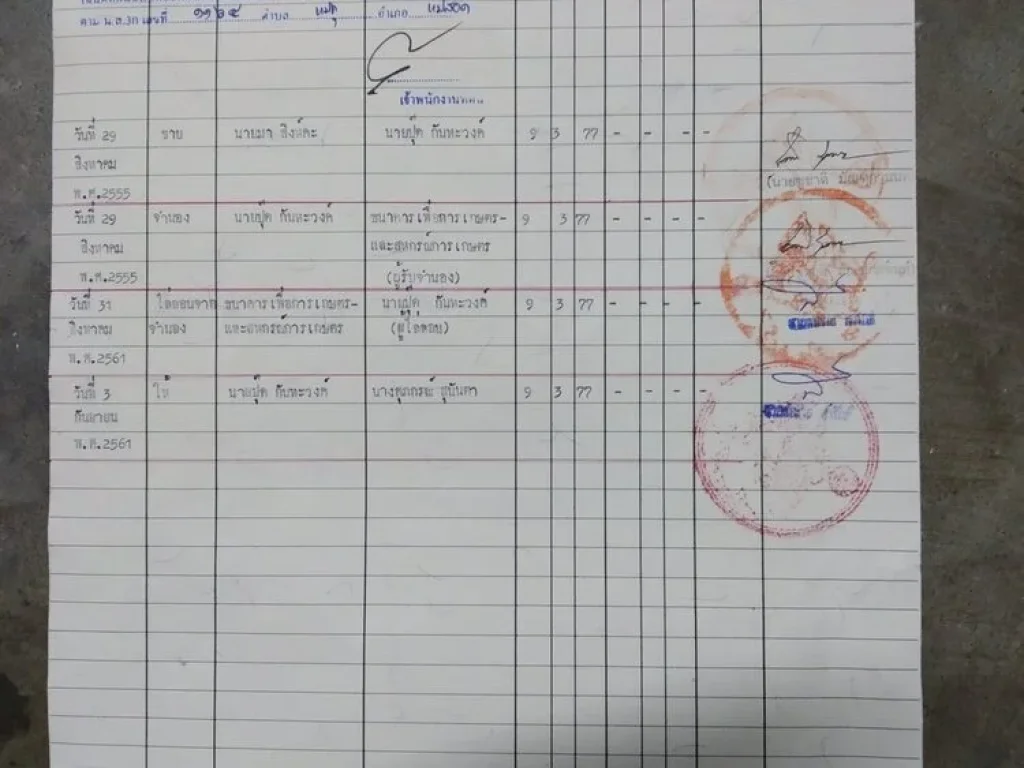 ตาม น.ส.3ก เลขที่ ๑๑๖๕ ตำบล อำเภอ
เจ้าพนักงานที่ดิน
วันที่ 29 ขาย นายมา สิงห์คะ นายปุ๊ด กันทะวงค์ 9 3 77 - - - -
สิงหาคม
พ.ศ.2555
วันที่ 29 จำนอง นายปุ๊ด กันทะวงค์ ธนาคารเพื่อการเกษตร- 9 3 77 - - - -
สิงหาคม และสหกรณ์การเกษตร
พ.ศ.2555 (ผู้รับจำนอง)
วันที่ 31 ไถ่ถอนจาก ธนาคารเพื่อการเกษตร- นายปุ๊ด กันทะวงค์ 9 3 77 - - - -
สิงหาคม จำนอง และสหกรณ์การเกษตร (ผู้ไถ่ถอน)
พ.ศ.2561
วันที่ 3 ให้ นายปุ๊ด กันทะวงค์ นางศุภกรณ์ สุนันตา 9 3 77 - - - -
กันยายน
พ.ศ.2561